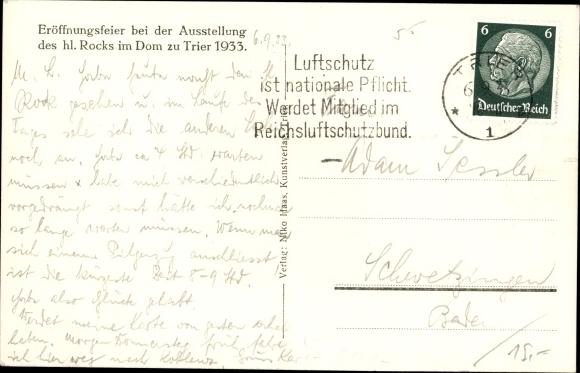 Eröffnungsfeier bei der Ausstellung
des hl. Rocks im Dom zu Trier 1933.
6.9.33
M. L. habe heute den Hl
Rock gesehen u. im Laufe des
Tages sehe ich die anderen
noch an. habe ca 4 Std. warten
müssen & habe mich verschiedentlich
vorgedrängt sonst hätte ich nochmal
so lange warten müssen. Wenn man
sich einem Pilgerzug anschliesst
ist die kürzeste Zeit 8-9 Std.
habe also Glück gehabt.
Werdet meine Karte von gestern
haben. Morgen Donnerstag früh fahre
ich hier weg nach Koblenz. Gruss
Verlag: Niko Haas, Kunstverlag, Trier
5-
Luftschutz
ist nationale Pflicht.
Werdet Mitglied im
Reichsluftschutzbund.
TRIER
* 1
6 6
Deutsches Reich
Adam Sessler
Schwetzingen
Baden
15,-